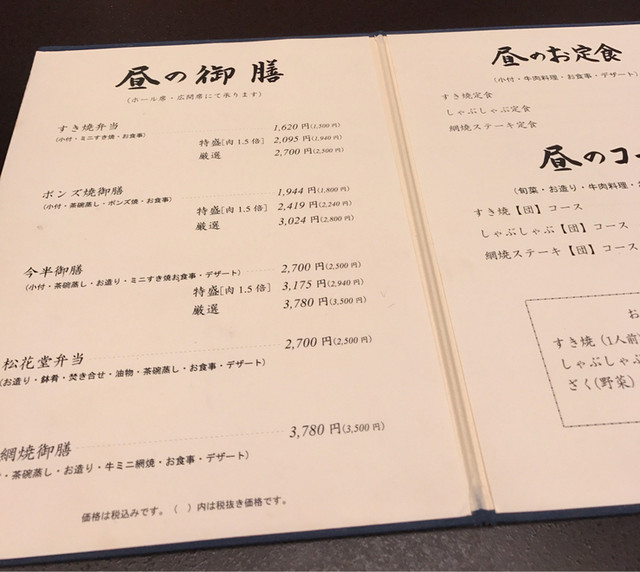 昼の御膳
(ホール席・広間席にて承ります)
すき焼弁当 1,620 円(1,500 円)
(小付・ミニすき焼・お食事)
特盛[肉 1.5 倍] 2,095 円(1,940 円)
厳選 2,700 円(2,500 円)
ポンズ焼御膳 1,944 円(1,800 円)
(小付・茶碗蒸し・ポンズ焼・お食事)
特盛[肉 1.5 倍] 2,419 円(2,240 円)
厳選 3,024 円(2,800 円)
今半御膳 2,700 円(2,500 円)
(小付・茶碗蒸し・お造り・ミニすき焼お食事・デザート)
特盛[肉 1.5 倍] 3,175 円(2,940 円)
厳選 3,780 円(3,500 円)
松花堂弁当 2,700 円(2,500 円)
(お造り・鉢肴・焚き合せ・油物・茶碗蒸し・お食事・デザート)
網焼御膳 3,780 円(3,500 円)
・茶碗蒸し・お造り・牛ミニ網焼・お食事・デザート)
価格は税込みです。( )内は税抜き価格です。
昼のお定食
(小付・牛肉料理・お食事・デザート)
すき焼定食
しゃぶしゃぶ定食
網焼ステーキ定食
昼のコー
(旬菜・お造り・牛肉料理・
すき焼【団】コース
しゃぶしゃぶ【団】コース
網焼ステーキ【団】コース
お
すき焼 (1人前)
しゃぶしゃぶ
ざく(野菜)